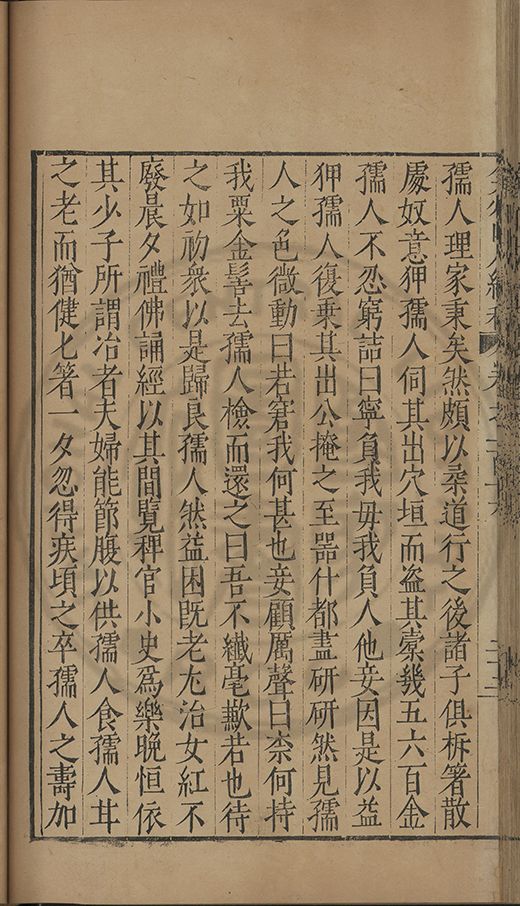 孺人理家秉矣然頗以柔道行之後諸子俱柝箸散
處奴意狎孺人伺其出穴垣而盗其橐幾五六百金
孺人不忍窮詰曰寧負我毋我負人他妾因是以益
狎孺人復乗其出公掩之至噐什都盡研研然見孺
人之色微動曰若窘我何甚也妾顧厲聲曰柰何持
我粟金髻去孺人檢而還之曰吾不纎毫歉若也待
之如初衆以是歸良孺人然益困旣老尢治女紅不
廢晨夕禮佛誦經以其間覽稗官小史爲樂晩恒依
其少子所謂冶者夫婦能節腹以供孺人食孺人耳
之老而猶健匕箸一夕忽得疾頃之卒孺人之壽加